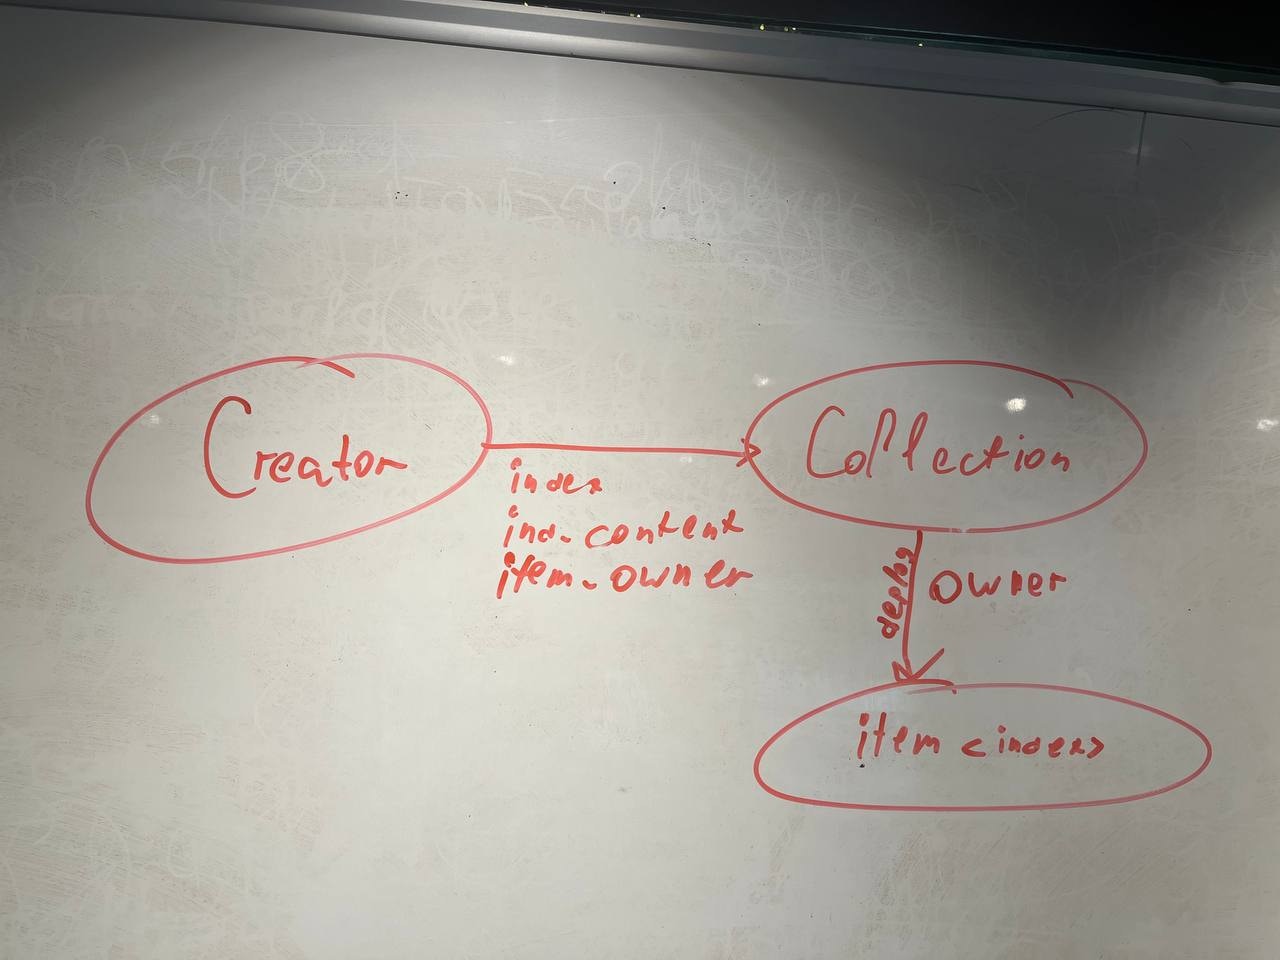 Creator
index
ind. content
item-owner
Collection
deploy
owner
item <index>